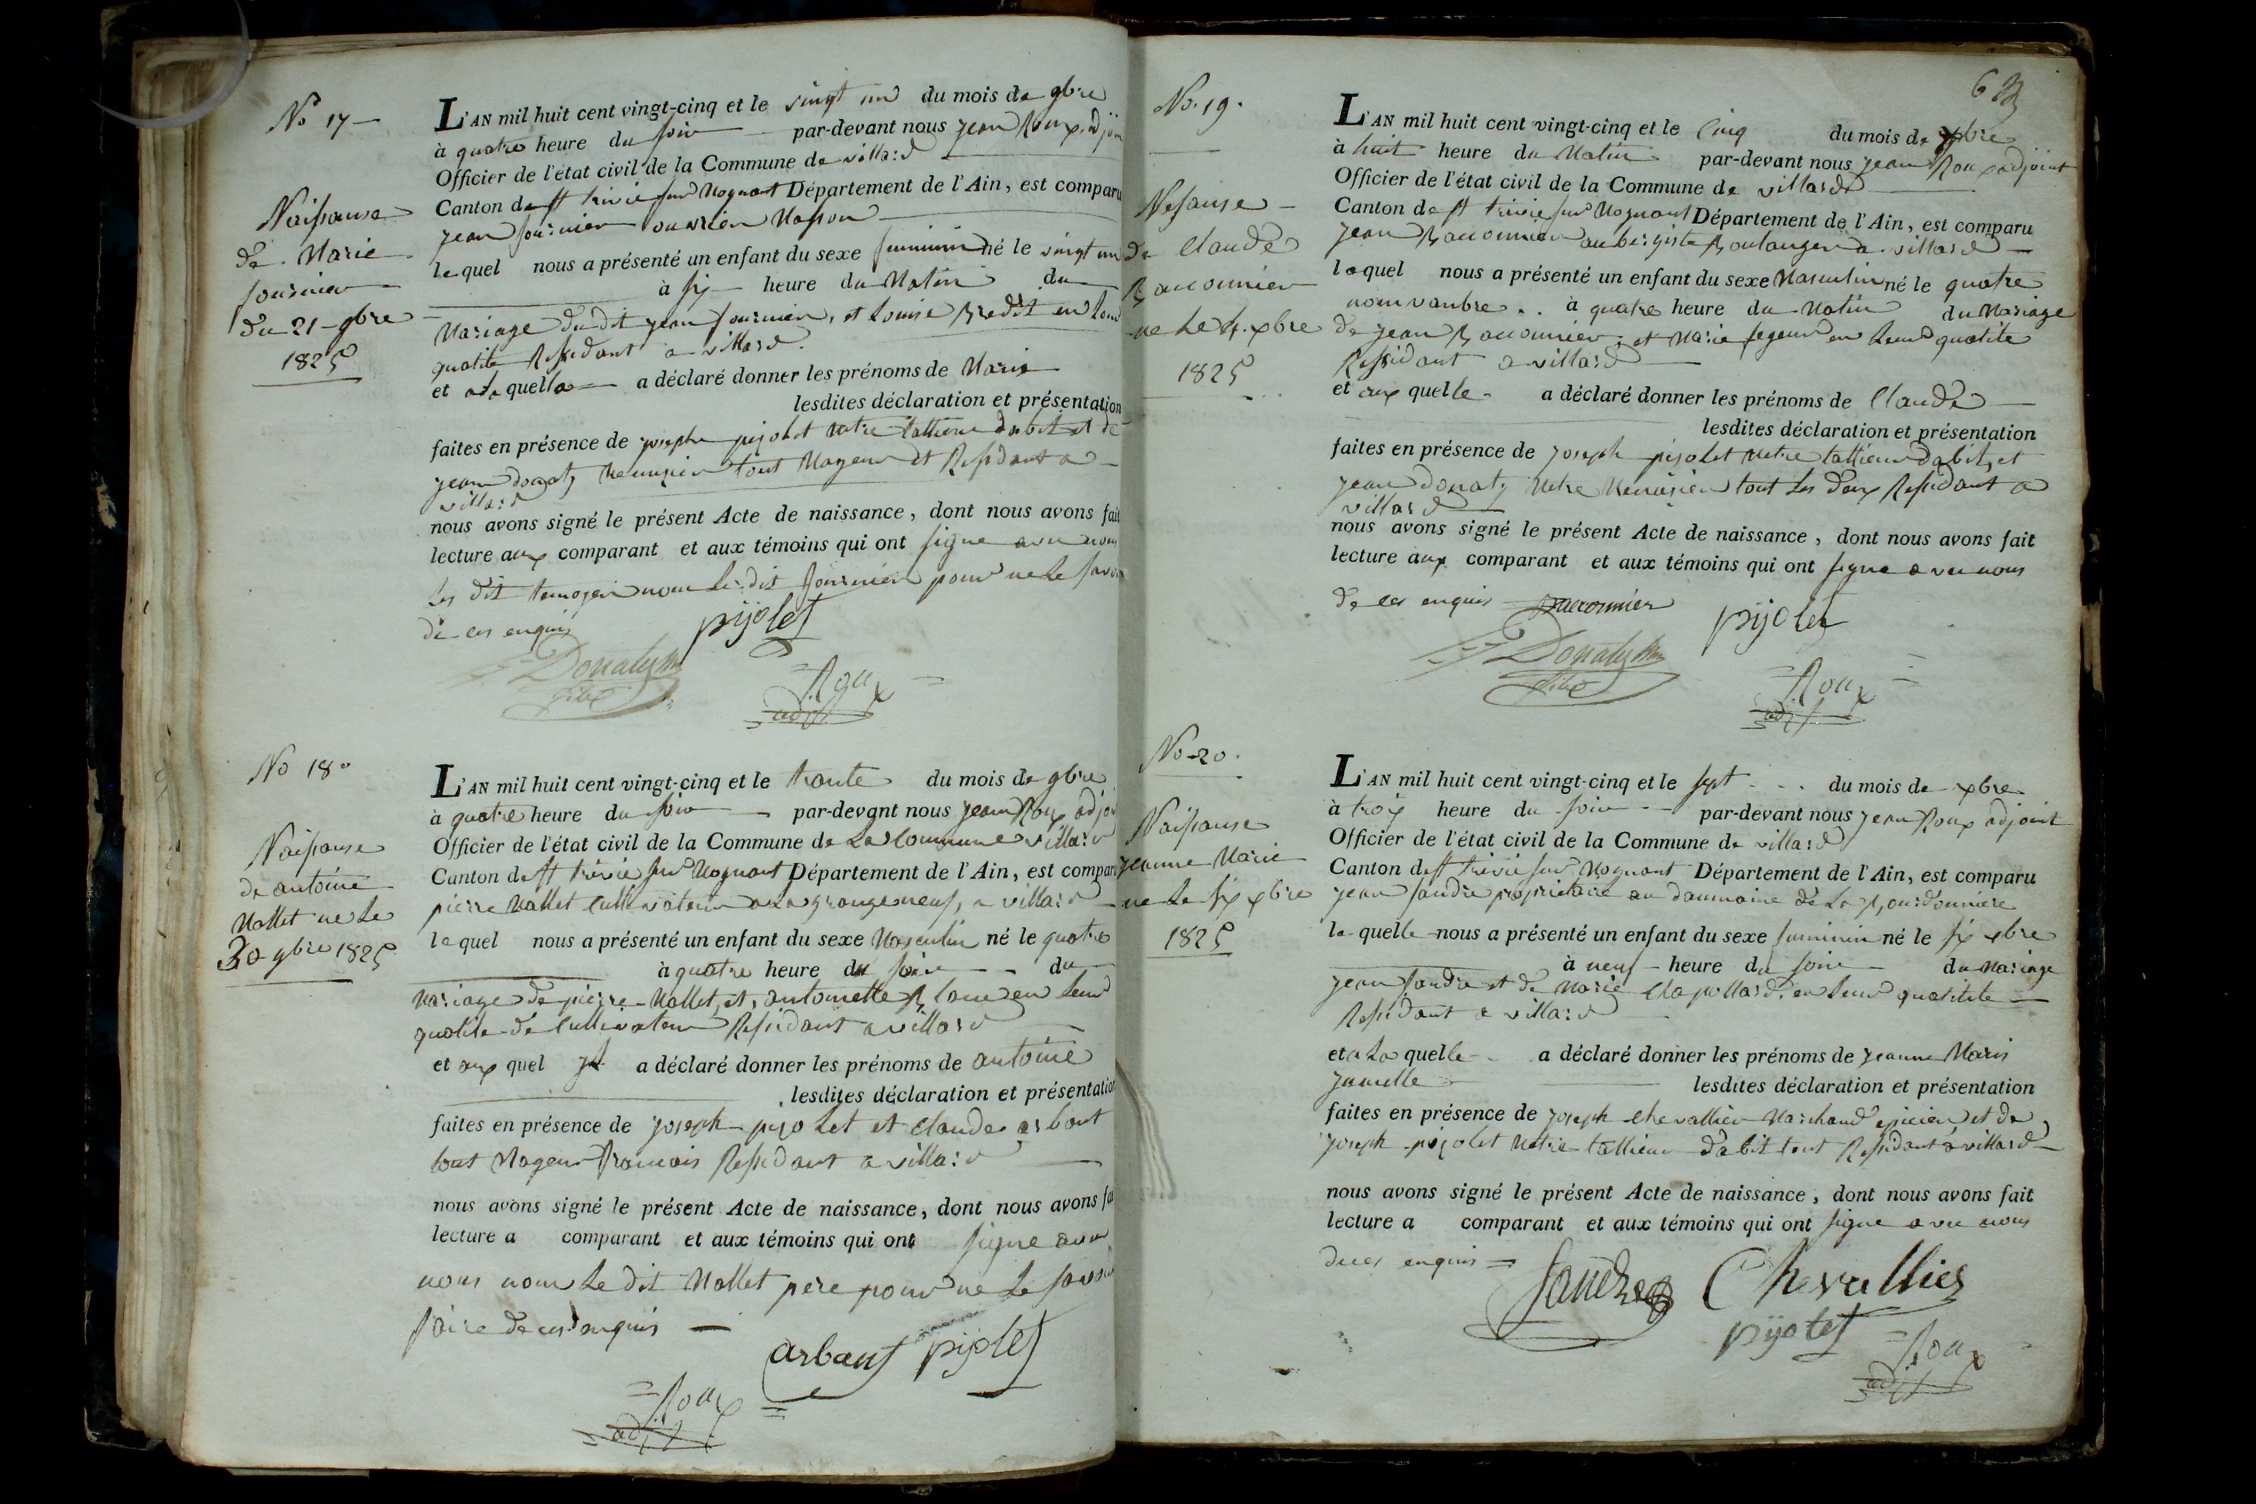 No 17 —
Naissance
de Marie
fournier
du 21 9bre
1825
L'AN mil huit cent vingt-cinq et le vingt un du mois de 9bre
à quatre heure du soir par-devant nous jean Roux adjoin
Officier de l'état civil de la Commune de villard
Canton de st trivié sur Mognant Département de l'Ain, est comparu
jean fournier ouvrier Masson
lequel nous a présenté un enfant du sexe feminin né le vingt un
à six heure du Matin du
Mariage du dit jean fournier, et Louise Bredit en Leur
qualite Residant a villard
et a la quelle a déclaré donner les prénoms de Marie
lesdites déclaration et présentation
faites en présence de joseph pijolet Metre tallieur dabit et de
jean donaty Menusier tout Mageur et Residant a
villard
nous avons signé le présent Acte de naissance, dont nous avons fait
lecture aux comparant et aux témoins qui ont signe avec nous
Les dit temogin non Le dit fournier pour ne Le savoir
de ces enquis
pijolet
Donaty
Roux
adj
No 18
Naissance
de antoine
Mallet ne Le
30 9bre 1825
L'AN mil huit cent vingt-cinq et le trante du mois de 9bre
à quatre heure du soir par-devant nous jean Roux adjoi
Officier de l'état civil de la Commune de La Commune villard
Canton de st trivié sur Mognant Département de l'Ain, est comparu
pierre Mallet cultivateur a La grange neuf, a villard
lequel nous a présenté un enfant du sexe Masculin né le quatre
à quatre heure du soir du
Mariage de pierre Mallet, et, antoinette Blanc en Leur
qualite de Cultivateur Residant a villard
et aux quel jl a déclaré donner les prénoms de antoine
lesdites déclaration et présentation
faites en présence de joseph pijolet et Claude arbant
tout Mageur francois Residant a villard
nous avons signé le présent Acte de naissance, dont nous avons fai
lecture a comparant et aux témoins qui ont signe avec
nous non Le dit Mallet pere pour ne Le savoir
faire de ces enquis
arbant pijolet
Roux
adj
63
No. 19.
Nesanse
de Claude
Baconnier
ne Le 4. xbre
1825
L'AN mil huit cent vingt-cinq et le Cinq du mois de xbre
à huit heure du Matin par-devant nous jean Roux adjoint
Officier de l'état civil de la Commune de villard
Canton de st trivié sur Mognant Département de l'Ain, est comparu
jean Baconnier aubergiste Boulanger a villard
lequel nous a présenté un enfant du sexe Masculin né le quatre
nouvanbre .. à quatre heure du Matin du Mariage
de jean Baconnier, et Marie en Leur qualite
Residant a villard
et aux quelle a déclaré donner les prénoms de Claude
lesdites déclaration et présentation
faites en présence de joseph pijolet Metre tallieur dabit, et
jean donaty Metre Menusier tout Les deux Residant a
villard
nous avons signé le présent Acte de naissance, dont nous avons fait
lecture aux comparant et aux témoins qui ont signe avec nous
de ces enquis Baconnier pijolet
Donaty
Roux
adj
No 20.
Naissanse
jeanne Marie
ne Le six xbre
1825
L'AN mil huit cent vingt-cinq et le sept du mois de xbre
à trois heure du soir par-devant nous jean Roux adjoint
Officier de l'état civil de la Commune de villard
Canton de st trivié sur Mognant Département de l'Ain, est comparu
jean sandre propriétaire au daumaine de La Bourdonniere
la quelle nous a présenté un enfant du sexe feminin né le six xbre
à neuf heure du soir du Mariage
jean sandre et de Marie Chapollard, en Leur qualitite
Residant a villard
et a La quelle a déclaré donner les prénoms de jeanne Marie
jumelle lesdites déclaration et présentation
faites en présence de joseph Chevallier Marchand epicier et de
joseph pijolet Metre tallieur dabit tout Residant a villard
nous avons signé le présent Acte de naissance, dont nous avons fait
lecture a comparant et aux témoins qui ont signe avec nous
de ces enquis Sandre Chevallier
pijolet
Roux
adj